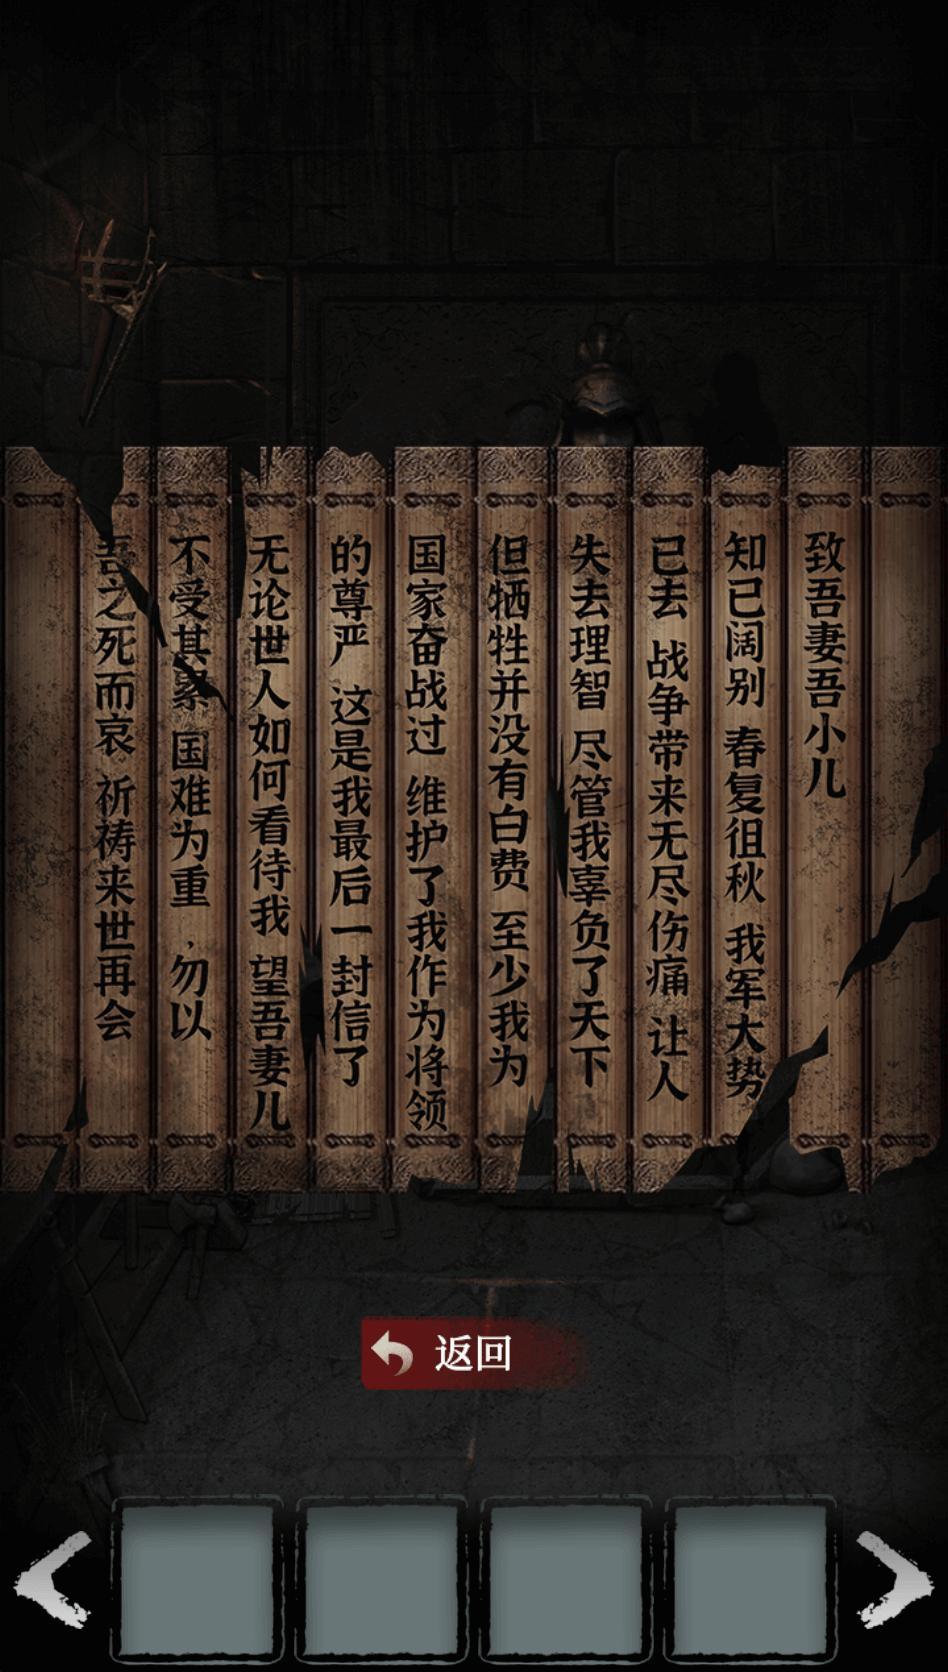 致吾妻吾小儿
知已阔别 春复徂秋 我军大势
已去 战争带来无尽伤痛 让人
失去理智 尽管我辜负了天下
但牺牲并没有白费 至少我为
国家奋战过 维护了我作为将领
的尊严 这是我最后一封信了
无论世人如何看待我 望吾妻儿
不受其累 国难为重，勿以
吾之死而哀 祈祷来世再会
返回